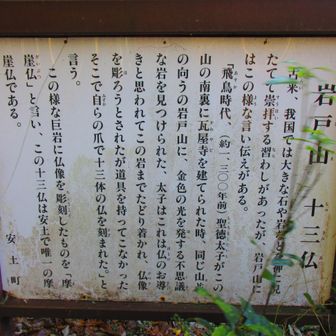 岩戸山 十三仏
古来、我国では大きな石や岩を
たてて崇拝する習わしがあったが、岩戸山に
はこの様な言い伝えがある。
「飛鳥時代、(約一、三〇〇年前)聖徳太子がこの
山の南裏に瓦屋寺を建てられた時、同じ山並
の向うの岩戸山に、金色の光を発する不思議
な岩を見つけられた、太子はこれは仏のお導
きと思われてこの岩までたどり着かれ、仏像
を彫ろうとされたが道具を持ってこなかった
そこで自らの爪で十三体の仏を刻まれた。と
言う。
この様な巨岩に仏像を彫刻したものを「摩
崖仏」と言い、この十三仏は安土で唯一の摩
崖仏である。
安土町